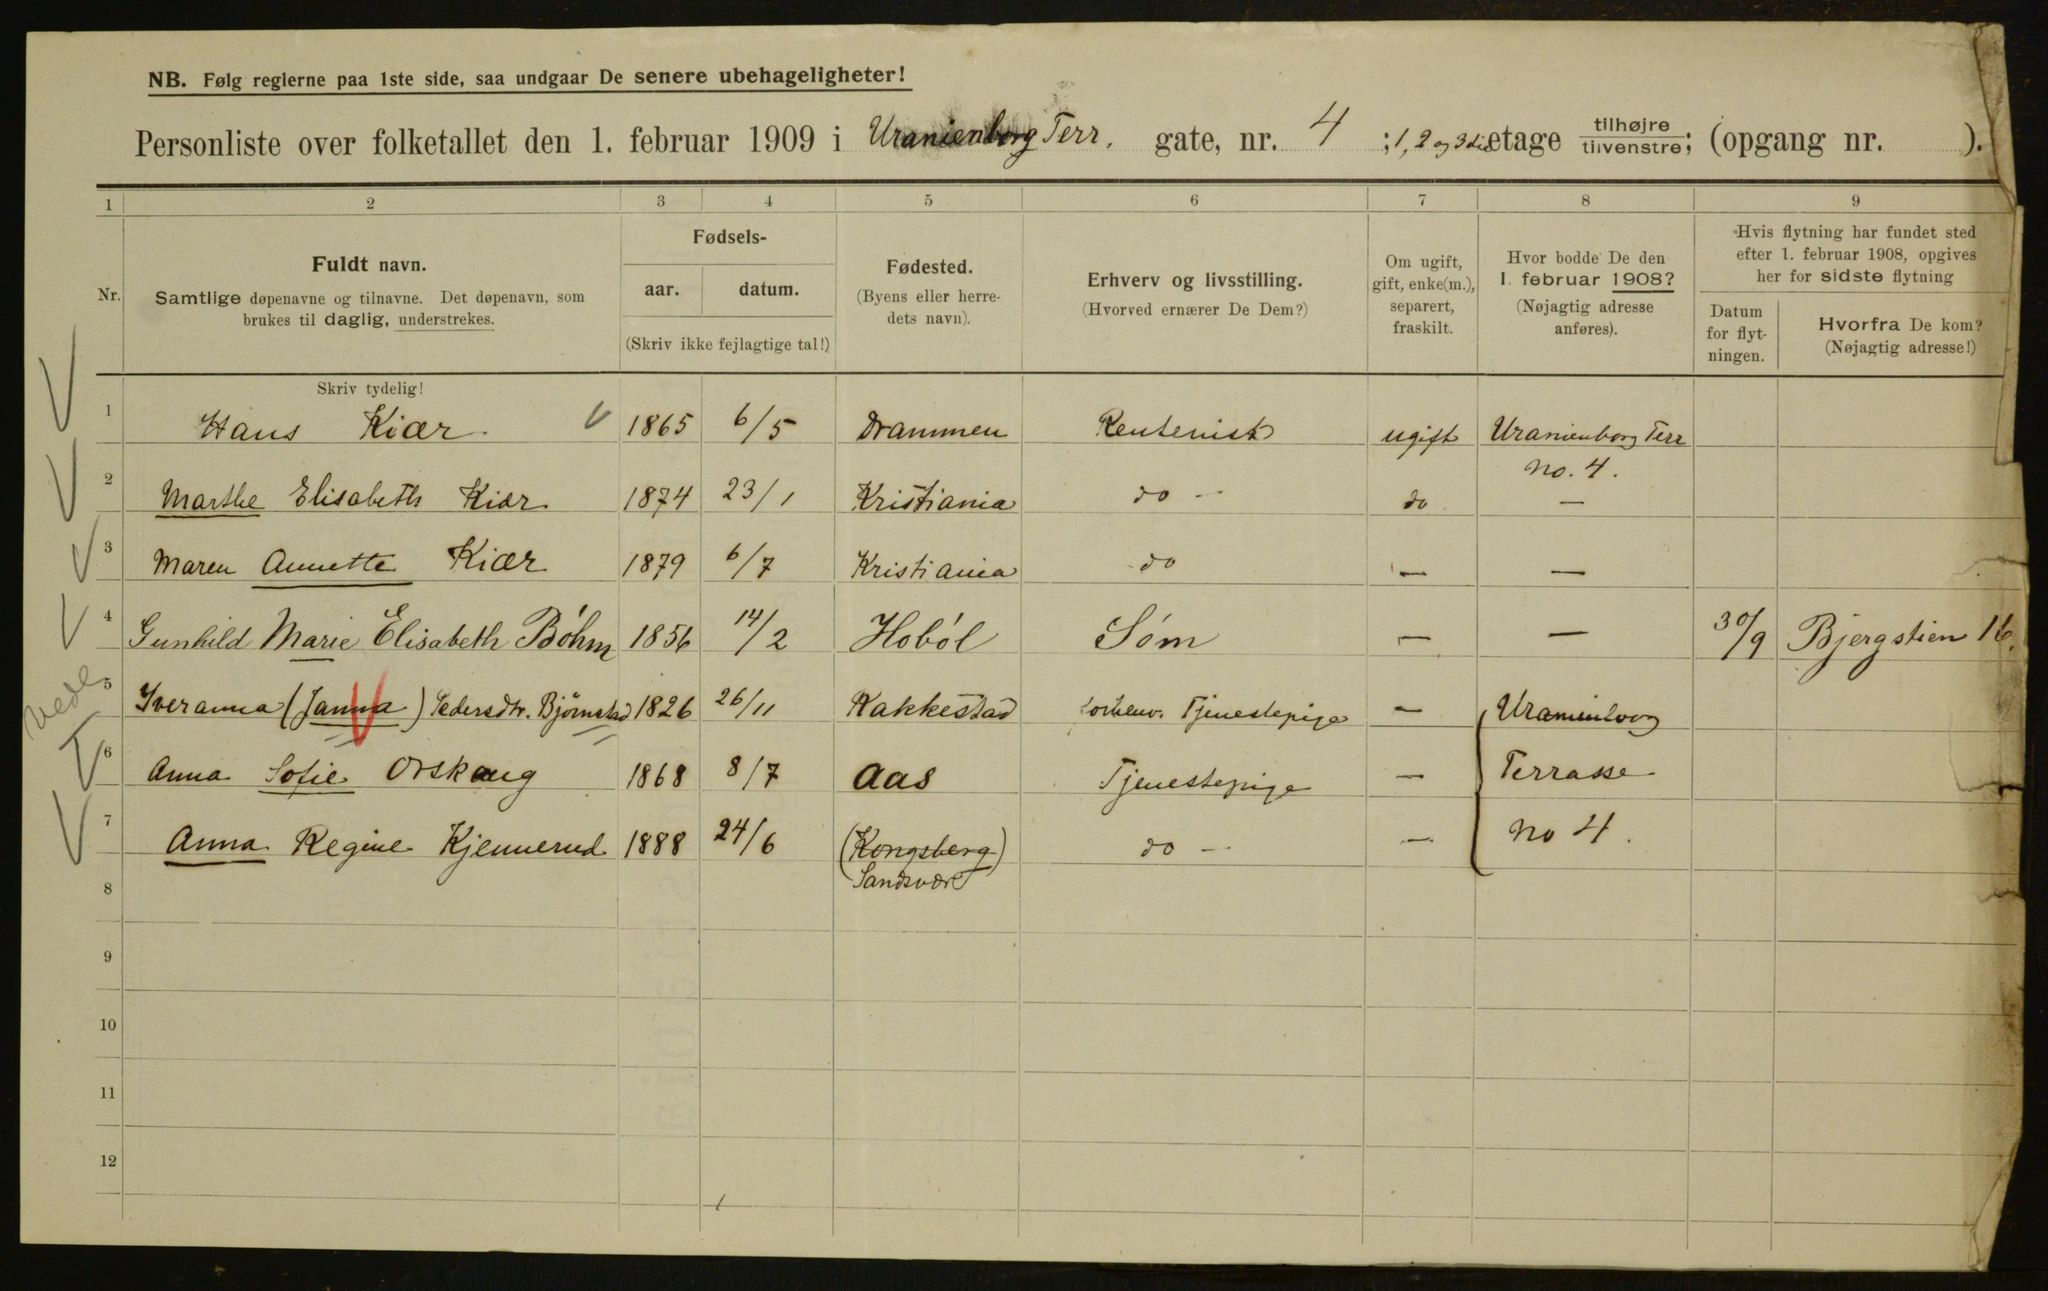 NB. Følg reglerne paa 1ste side, saa undgaar De senere ubehageligheter!
Personliste over folketallet den 1. februar 1909 i Uranienborg Terr. gate, nr. 4 ; 1, 2 og 3die etage tilhøjre tilvenstre; (opgang nr. ).
1 2 3 4 5 6 7 8 9
Nr.
Fuldt navn.
Samtlige døpenavne og tilnavne. Det døpenavn, som
brukes til daglig, understrekes.
Fødsels-
aar. datum.
(Skriv ikke fejlagtige tal!)
Fødested.
(Byens eller herre-
dets navn).
Erhverv og livsstilling.
(Hvorved ernærer De Dem?)
Om ugift,
gift, enke(m.),
separert,
fraskilt.
Hvor bodde De den
1. februar 1908?
(Nøjagtig adresse
anføres).
Hvis flytning har fundet sted
efter 1. februar 1908, opgives
her for sidste flytning
Datum
for flyt-
ningen.
Hvorfra De kom?
(Nøjagtig adresse!)
Skriv tydelig!
1 Hans Kiær 1865 6/5 Drammen Rentenist ugift Uranienborg Terr
No. 4.
2 Marthe Elisabeth Kiær 1874 23/1 Kristiania do - do —
3 Maren Annette Kiær 1879 6/7 Kristiania do — —
4 Gunhild Marie Elisabeth Bóhm 1856 14/2 Hoból Søm — — 30/9 Bjergstien 16.
5 Iveranna (Janna) Pedersdtr. Bjørnstad 1826 26/11 Rakkestad Tjenestepige — Uranienborg
6 Anna Sofie Orskaug 1868 8/7 Aas Tjenestepige — Terrasse
7 Anna Regine Kjennerud 1888 24/6 (Kongsberg) do - — No 4.
Sandsvær
8
9
10
11
12